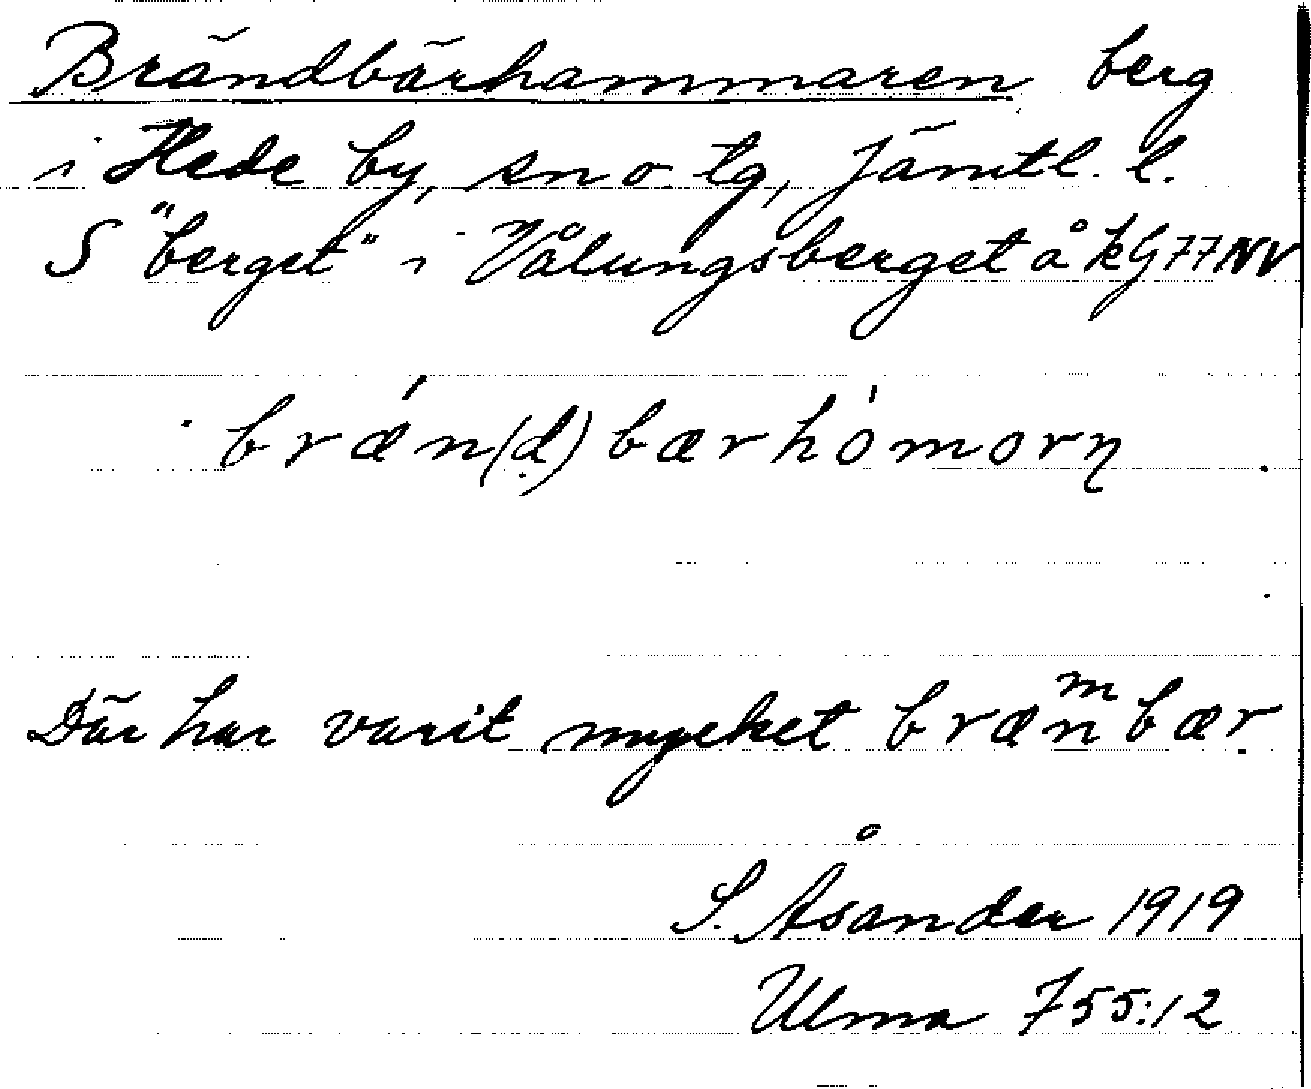 Brändbärhammaren berg
i Hede by, sn o. tg, Jämtl. l.
S "berget" i Vålungsberget å kG77NV
bræ´n(d)bærhò´morn̥
Där har varit mycket bræmnbær.
S. Åsander 1919
Ulma 755:12